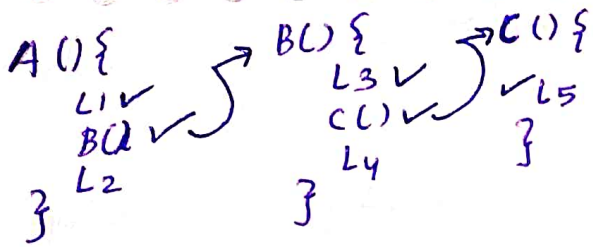 A () {
L1 ✓
B() ✓
L2
}
B() {
L3 ✓
C() ✓
L4
}
C () {
✓ L5
}